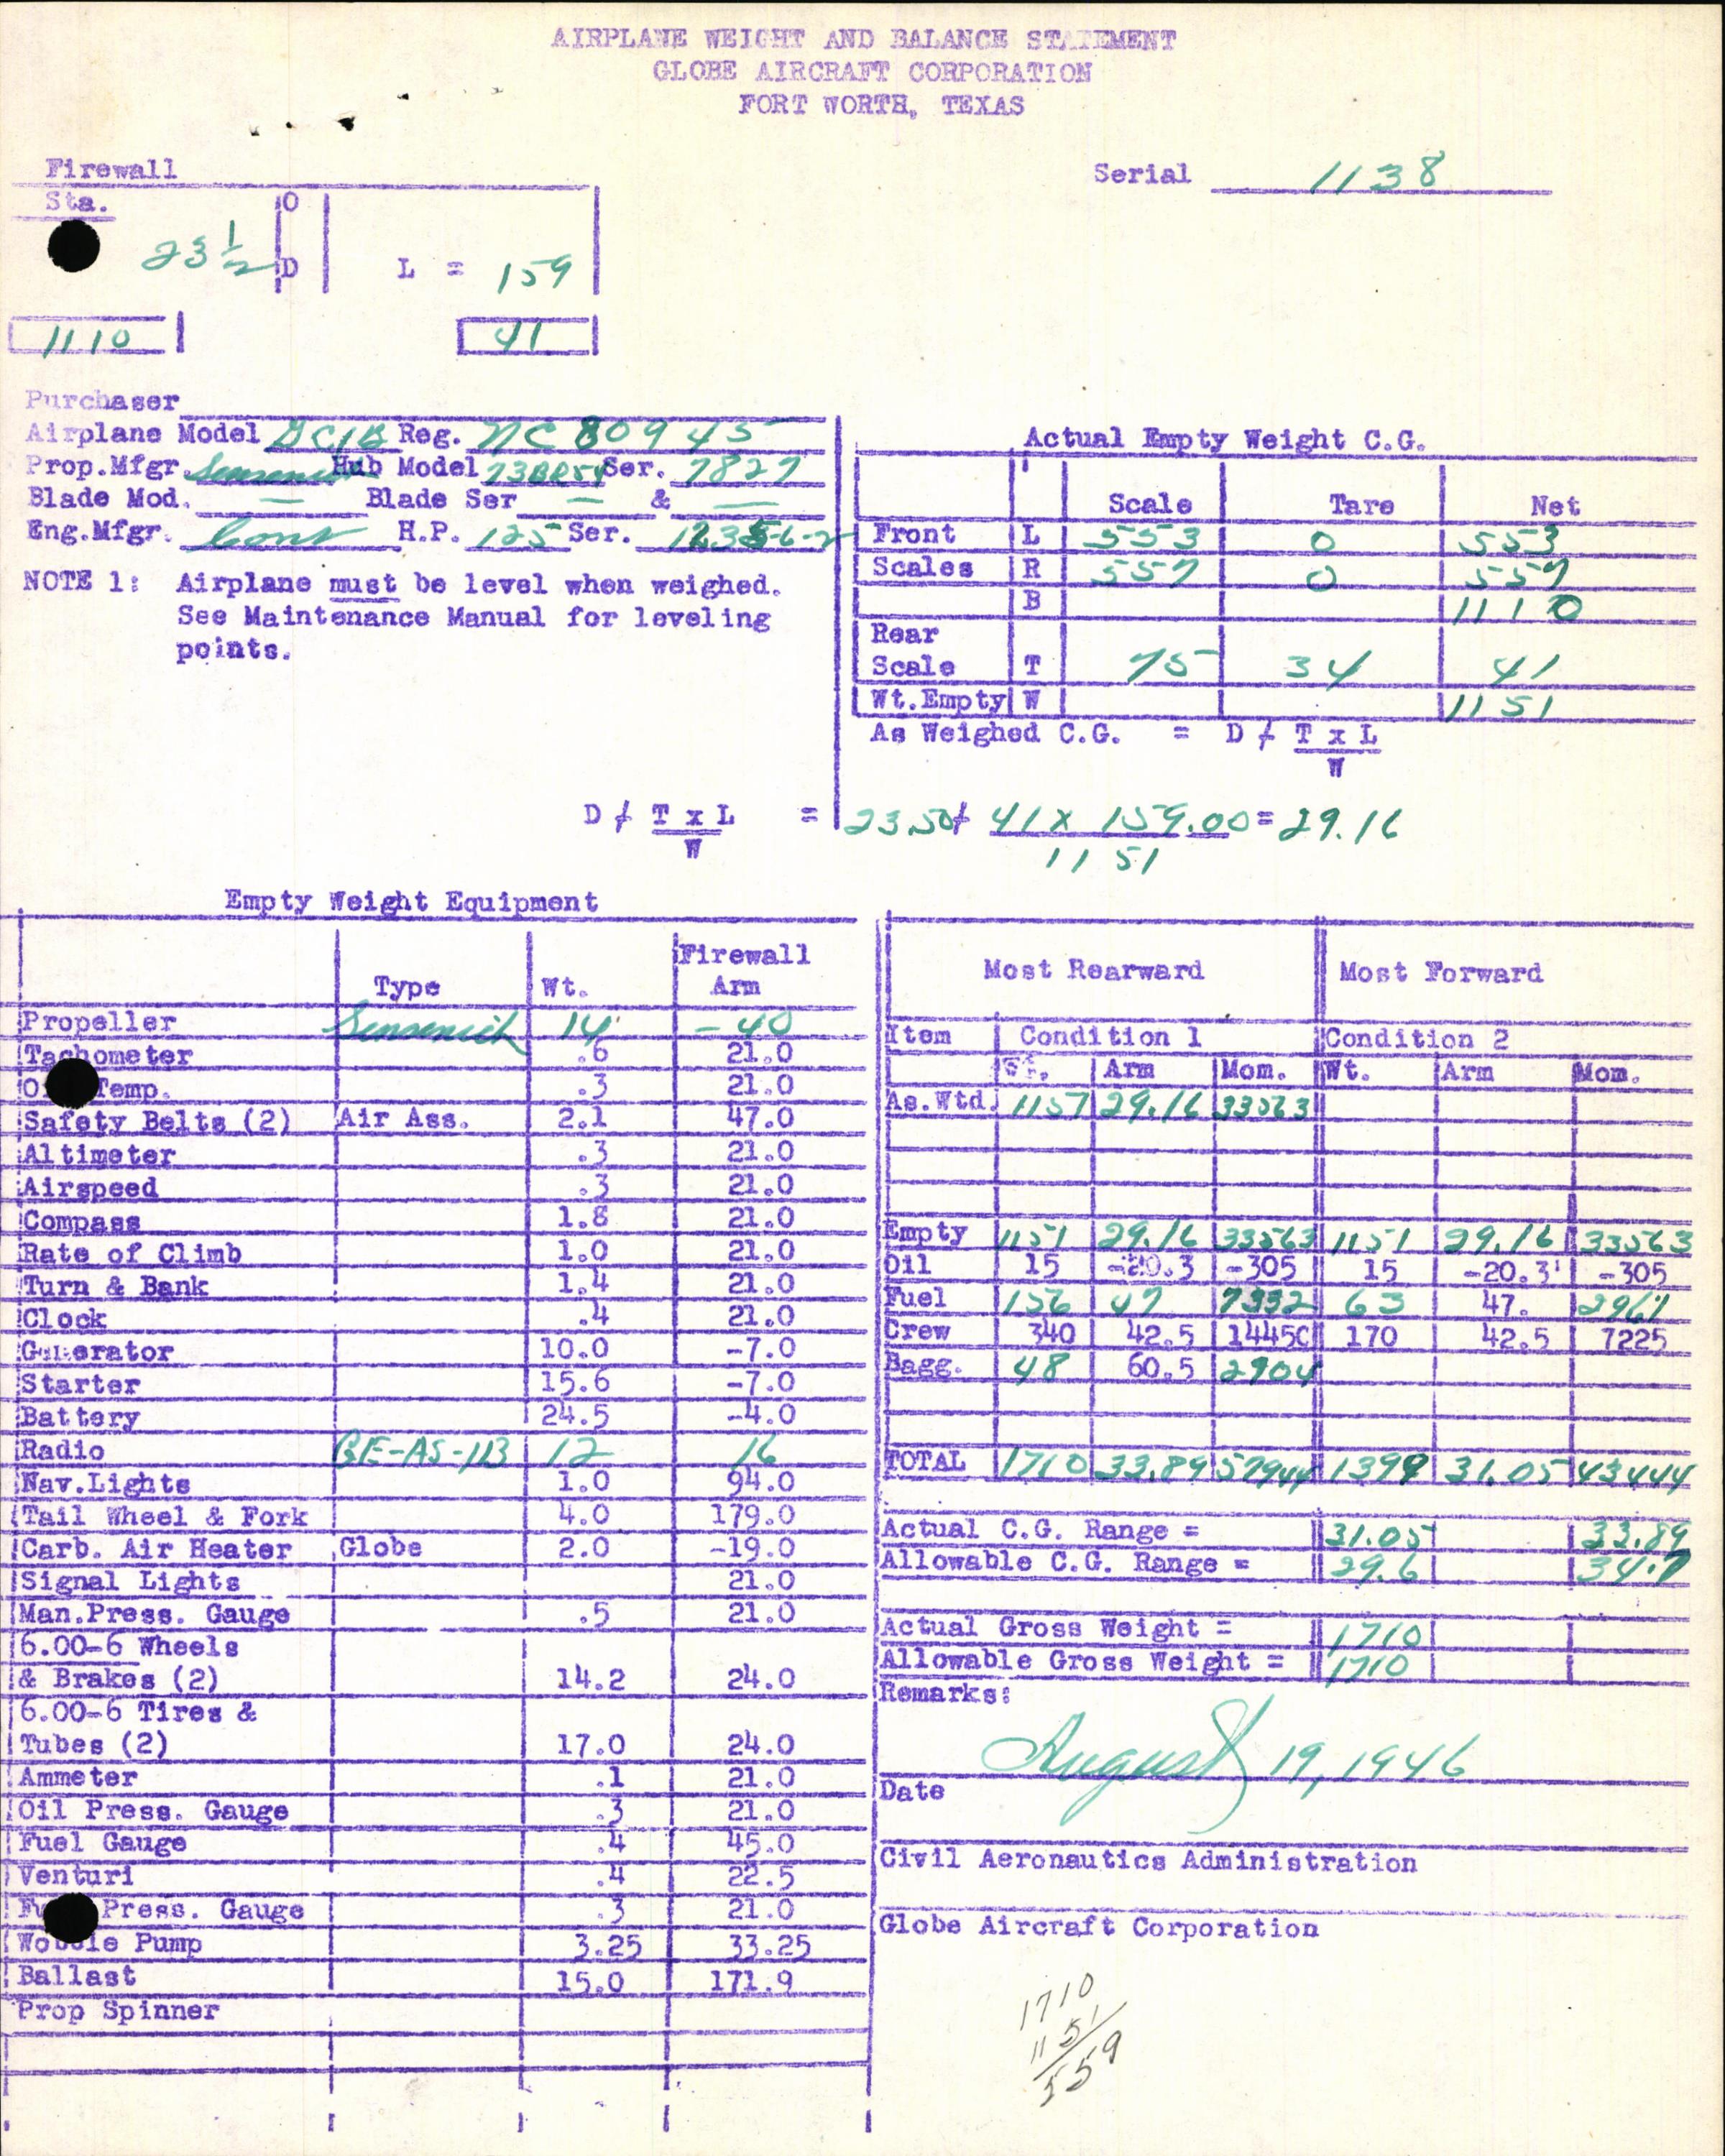 AIRPLANE WEIGHT AND BALANCE STATEMENT
GLOBE AIRCRAFT CORPORATION
FORT WORTH, TEXAS
Firewall
Serial 1138
Sta.
O
23 1/2 D L = 159
1110 41
Purchaser
Airplane Model GC1B Reg. NC 80945
Prop.Mfgr. Sensenich Hub Model 73BR54 Ser. 7827
Blade Mod. — Blade Ser — & —
Eng.Mfgr. Cont H.P. 125 Ser.
NOTE 1: Airplane must be level when weighed.
See Maintenance Manual for leveling
points.
Actual Empty Weight C.G.
Scale Tare Net
Front L 553 0 553
Scales R 557 0 557
B 1110
Rear
Scale T 75 34 41
Wt.Empty W 1151
As Weighed C.G. = D + T x L
W
D + T x L = 23.50 + 41 x 159.00 = 29.16
W 1151
Empty Weight Equipment
Type Wt. Firewall Arm
Propeller Sensenich 14 -40
Tachometer .6 21.0
Temp. .3 21.0
Safety Belts (2) Air Ass. 2.1 47.0
Altimeter .3 21.0
Airspeed .3 21.0
Compass 1.8 21.0
Rate of Climb 1.0 21.0
Turn & Bank 1.4 21.0
Clock .4 21.0
Generator 10.0 -7.0
Starter 15.6 -7.0
Battery 24.5 -4.0
Radio GE-AS-1B 12 16
Nav.Lights 1.0 94.0
Tail Wheel & Fork 4.0 179.0
Carb. Air Heater Globe 2.0 -19.0
Signal Lights 21.0
Man.Press. Gauge .5 21.0
6.00-6 Wheels
& Brakes (2) 14.2 24.0
6.00-6 Tires &
Tubes (2) 17.0 24.0
Ammeter .1 21.0
Oil Press. Gauge .3 21.0
Fuel Gauge .4 45.0
Venturi .4 22.5
Press. Gauge .3 21.0
Wobble Pump 3.25 33.25
Ballast 15.0 171.9
Prop Spinner
Most Rearward Most Forward
Item Condition 1 Condition 2
Wt. Arm Mom. Wt. Arm Mom.
As.Wtd. 1151 29.16 33563
Empty 1151 29.16 33563 1151 29.16 33563
Oil 15 -20.3 -305 15 -20.3 -305
Fuel 156 47 7332 63 47. 2961
Crew 340 42.5 14450 170 42.5 7225
Bagg. 48 60.5 2904
TOTAL 1710 33.89 57944 1399 31.05 43444
Actual C.G. Range = 31.05 33.89
Allowable C.G. Range = 29.6 34.7
Actual Gross Weight = 1710
Allowable Gross Weight = 1710
Remarks:
August 19, 1946
Date
Civil Aeronautics Administration
Globe Aircraft Corporation
1710
1151
559